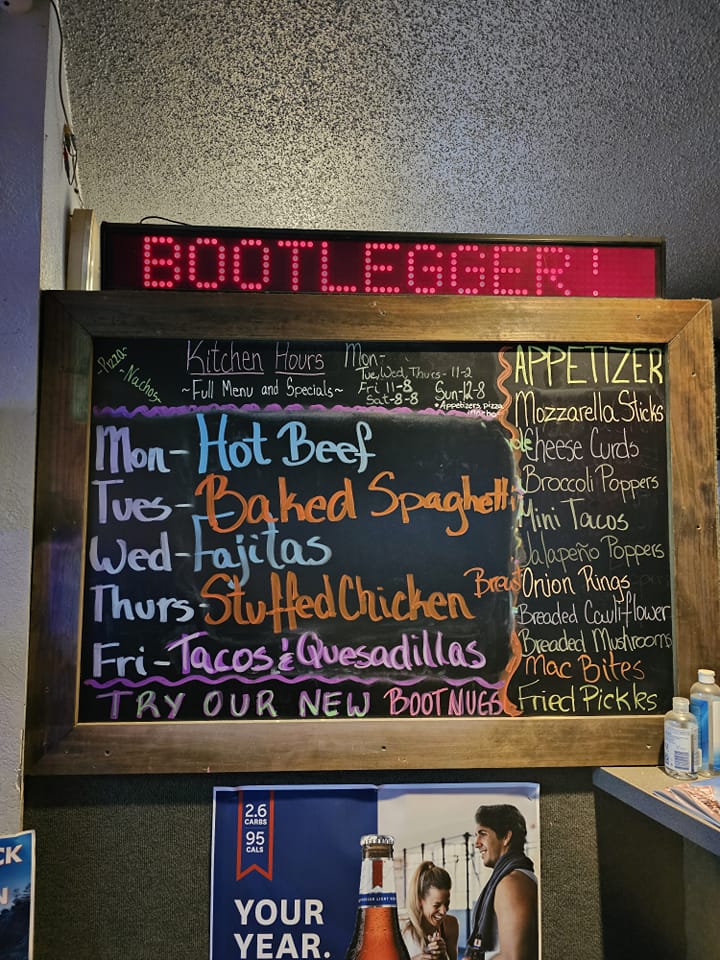 BOOTLEGGER!
-Pizza-
-Nachos-
Kitchen Hours
~Full Menu and Specials~
Mon-
Tue, Wed, Thurs- 11-2
Fri 11-8
Sat-8-8
Sun-12-8
*Appetizers, pizza
Mon- Hot Beef
Tues- Baked Spaghetti
Wed- Fajitas
Thurs- Stuffed Chicken Breast
Fri- Tacos & Quesadillas
TRY OUR NEW BOOTNUGS
APPETIZER
Mozzarella Sticks
Cheese Curds
Broccoli Poppers
Mini Tacos
Jalapeño Poppers
Onion Rings
Breaded Cauliflower
Breaded Mushrooms
Mac Bites
Fried Pickles
2.6
CARBS
95
CALS
YOUR
YEAR.
CK
N